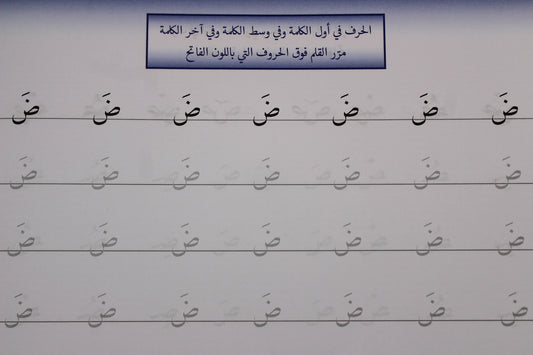 الحرف في أول الكلمة وفي وسط الكلمة وفي آخر الكلمة
مرّر القلم فوق الحروف التي باللون الفاتح
ضَ ضَ ضَ ضَ ضَ ضَ ضَ
ضَ ضَ ضَ ضَ ضَ ضَ ضَ
ضَ ضَ ضَ ضَ ضَ ضَ ضَ
ضَ ضَ ضَ ضَ ضَ ضَ ضَ